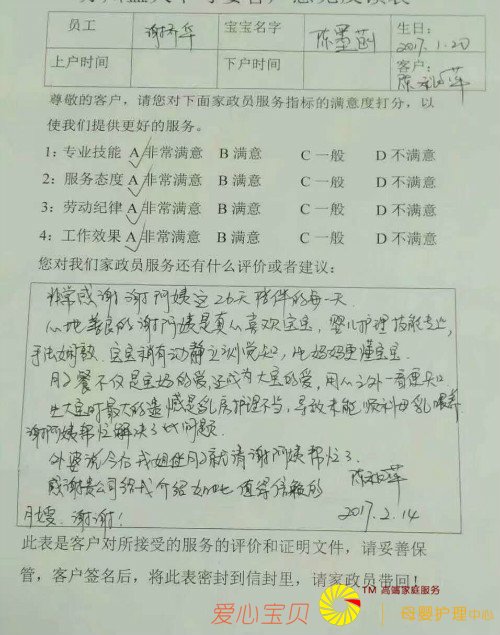 员工 谢乔华 宝宝名字 陈墨菡 生日：2017.1.20
上户时间 下户时间 客户：陈 萍
尊敬的客户，请您对下面家政员服务指标的满意度打分，以
使我们提供更好的服务。
1: 专业技能 A 非常满意 B 满意 C 一般 D 不满意
2: 服务态度 A 非常满意 B 满意 C 一般 D 不满意
3: 劳动纪律 A 非常满意 B 满意 C 一般 D 不满意
4: 工作效果 A 非常满意 B 满意 C 一般 D 不满意
您对我们家政员服务还有什么评价或者建议:
非常感谢谢阿姨这26天陪伴的每一天.
心地善良的谢阿姨是真心喜欢宝宝，婴儿护理技能专业，
手法娴熟.宝宝稍有动静立刻觉起，比妈妈更懂宝宝.
月子餐不仅是宝妈的爱,还成为大宝的爱,
生大宝时最大的遗憾是乳房护理不当,导致未能顺利母乳喂养
谢阿姨帮忙解决了此问题.
外婆说今后我姐坐月子就请谢阿姨帮忙了.
感谢贵公司给我介绍如此值得信赖的 陈 萍
月嫂.谢谢! 2017.2.14
此表是客户对所接受的服务的评价和证明文件，请妥善保
管，客户签名后，将此表密封到信封里，请家政员带回！
TM 高端家庭服务
爱心宝贝 母婴护理中心